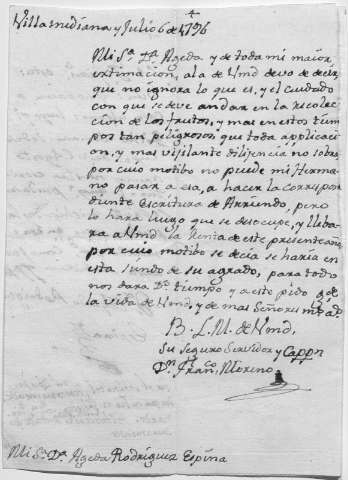 Villamediana y Julio 6 de 1796
Mi Sª Dª Ageda y de toda mi maior
extimacion, a la de Vmd devo de decir,
que no ignora lo que es, y el cuidado
con que se deve andar en la recolec
cion de los frutos, y mas en estos tiem
pos tan peligrosos que toda applicaci
on, y mas vijilante dilijencia no sobra,
por cuio motibo no puede mi Herma
no pasar a esa, a hacer la correspon
diente Escritura de Arriendo, pero
lo hara luego que se desocupe, y lleba
ra a Vmd la renta de este presente año,
por cuio motibo se decia se haria en
esta siendo de su agrado, para todo
nos dara Ds tiempo y a este pido gde
la vida de Vmd, y de mas Señores ms as
B. L. M. de Vmd,
su seguro servidor y Cappn
Dn Franco Moreno
Mi Sª Dª Ageda Rodriguez Espina